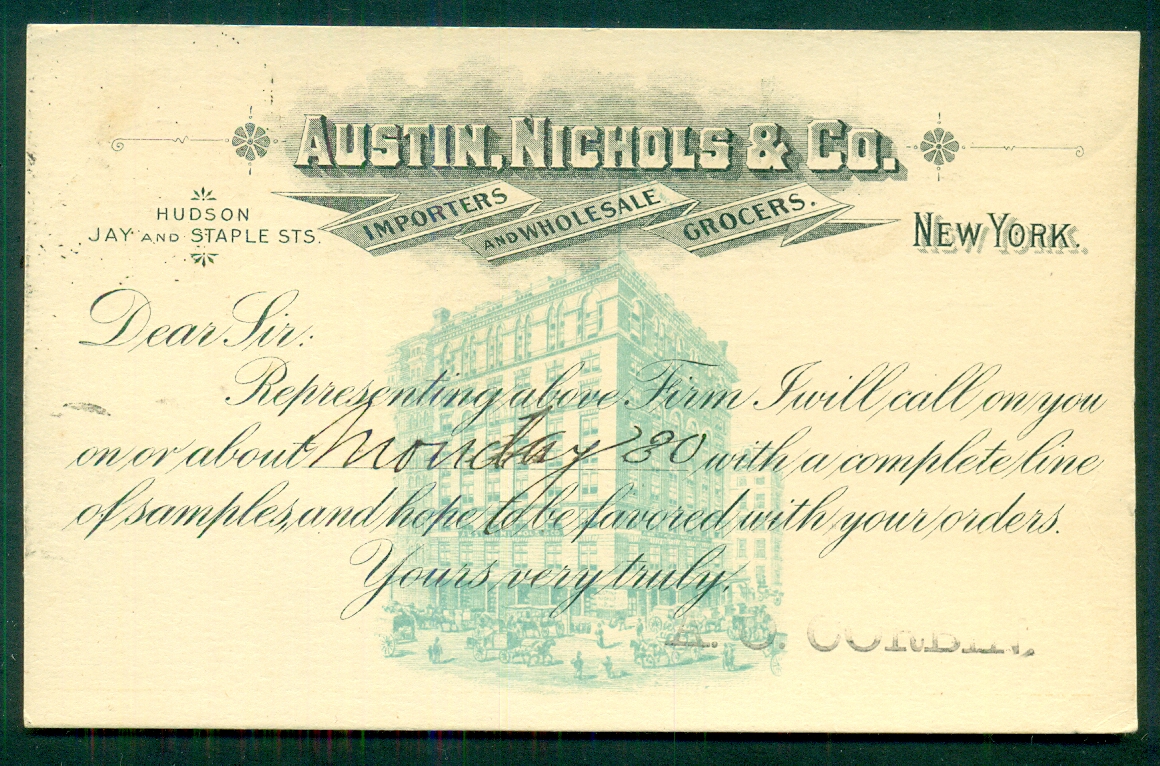 AUSTIN, NICHOLS & CO.
IMPORTERS AND WHOLESALE GROCERS.
HUDSON
JAY AND STAPLE STS.
NEW YORK.
Dear Sir:
Representing above Firm I will call on you
on or about Monday 30 with a complete line
of samples, and hope to be favored with your orders.
Yours very truly,
CORBIN.